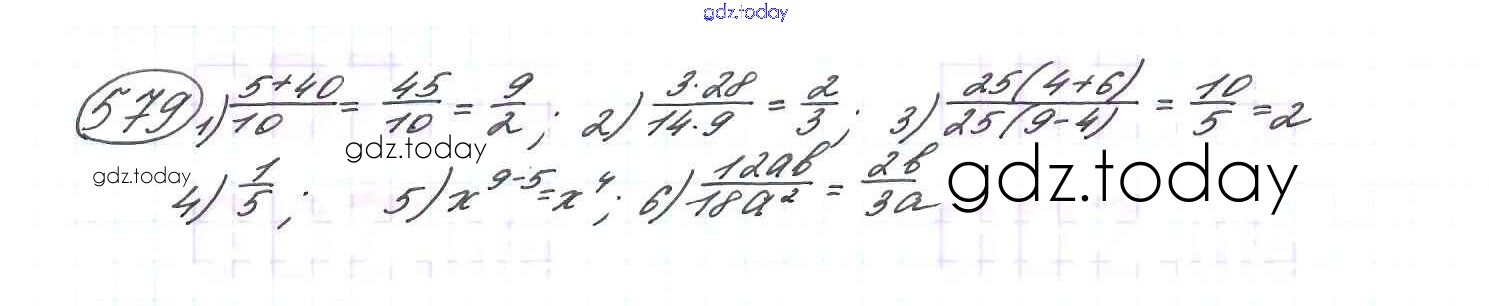 gdz.today
579 1) 5+40/10 = 45/10 = 9/2; 2) 3·28/14·9 = 2/3; 3) 25(4+6)/25(9-4) = 10/5 = 2
gdz.today
gdz.today 4) 1/5; 5) x^(9-5) = x^4; 6) 12ab/18a² = 2b/3a gdz.today